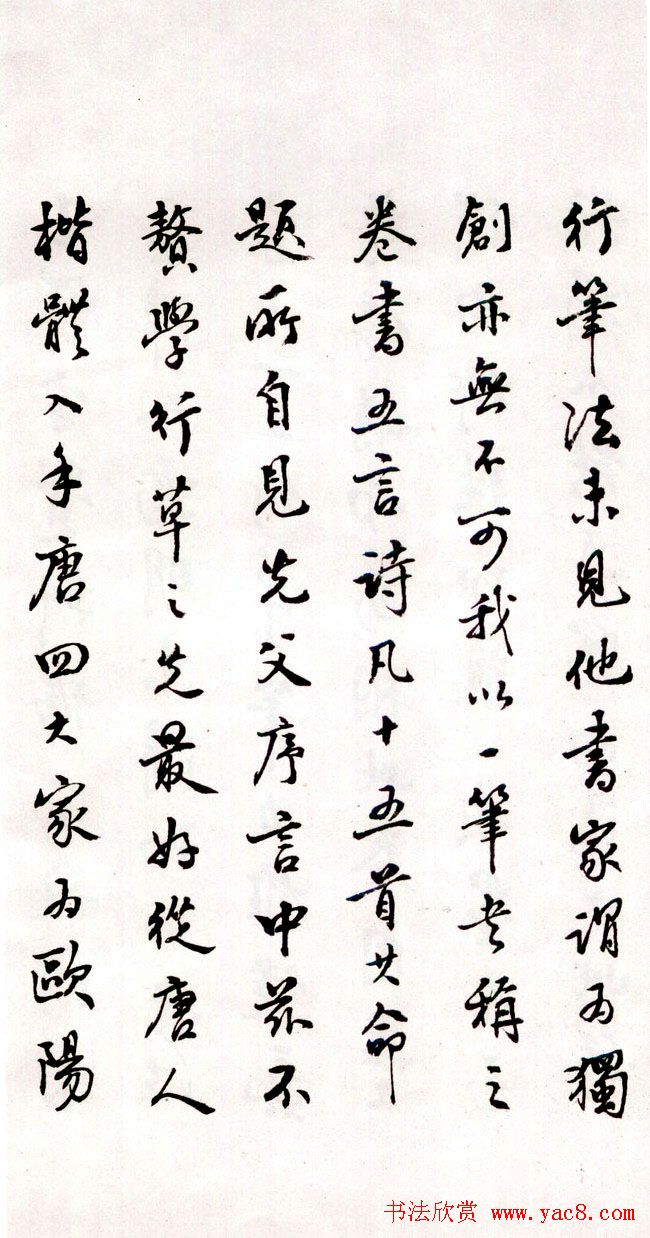 行筆法未見他書家謂為獨
創亦無不可我以一筆書稱之
卷書五言詩凡十五首其命
題所自見先父序言中茲不
贅學行草之先最好從唐人
楷體入手唐四大家為歐陽
书法欣赏 www.yac8.com